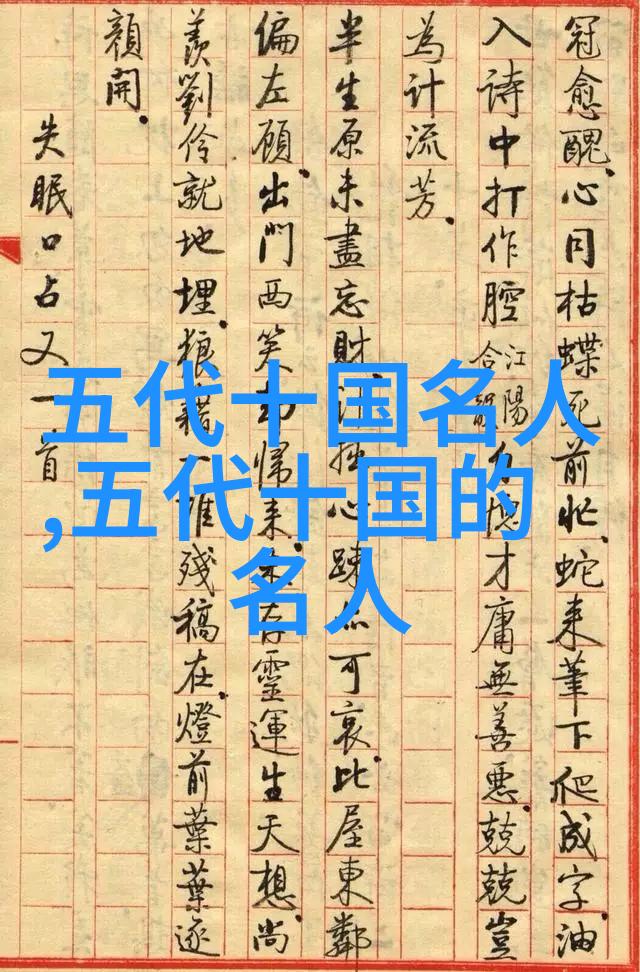 冠愈醜。心同枯蝶死前忙。蛇来筆下爬成字。油
入詩中打作腔江陽合韻自愧才庸無善惡。兢兢豈
為計流芳。
半生原未盡忘財。計拙心疎亦可哀。比屋東鄰
偏左顧。出門西笑却歸来。未存靈運生天想。尚
羨劉伶就地埋。狼藉一堆殘稿在。燈前葉葉逐
顏開。
失眠口占又一首
五代十国名人
,五代十国的
名人